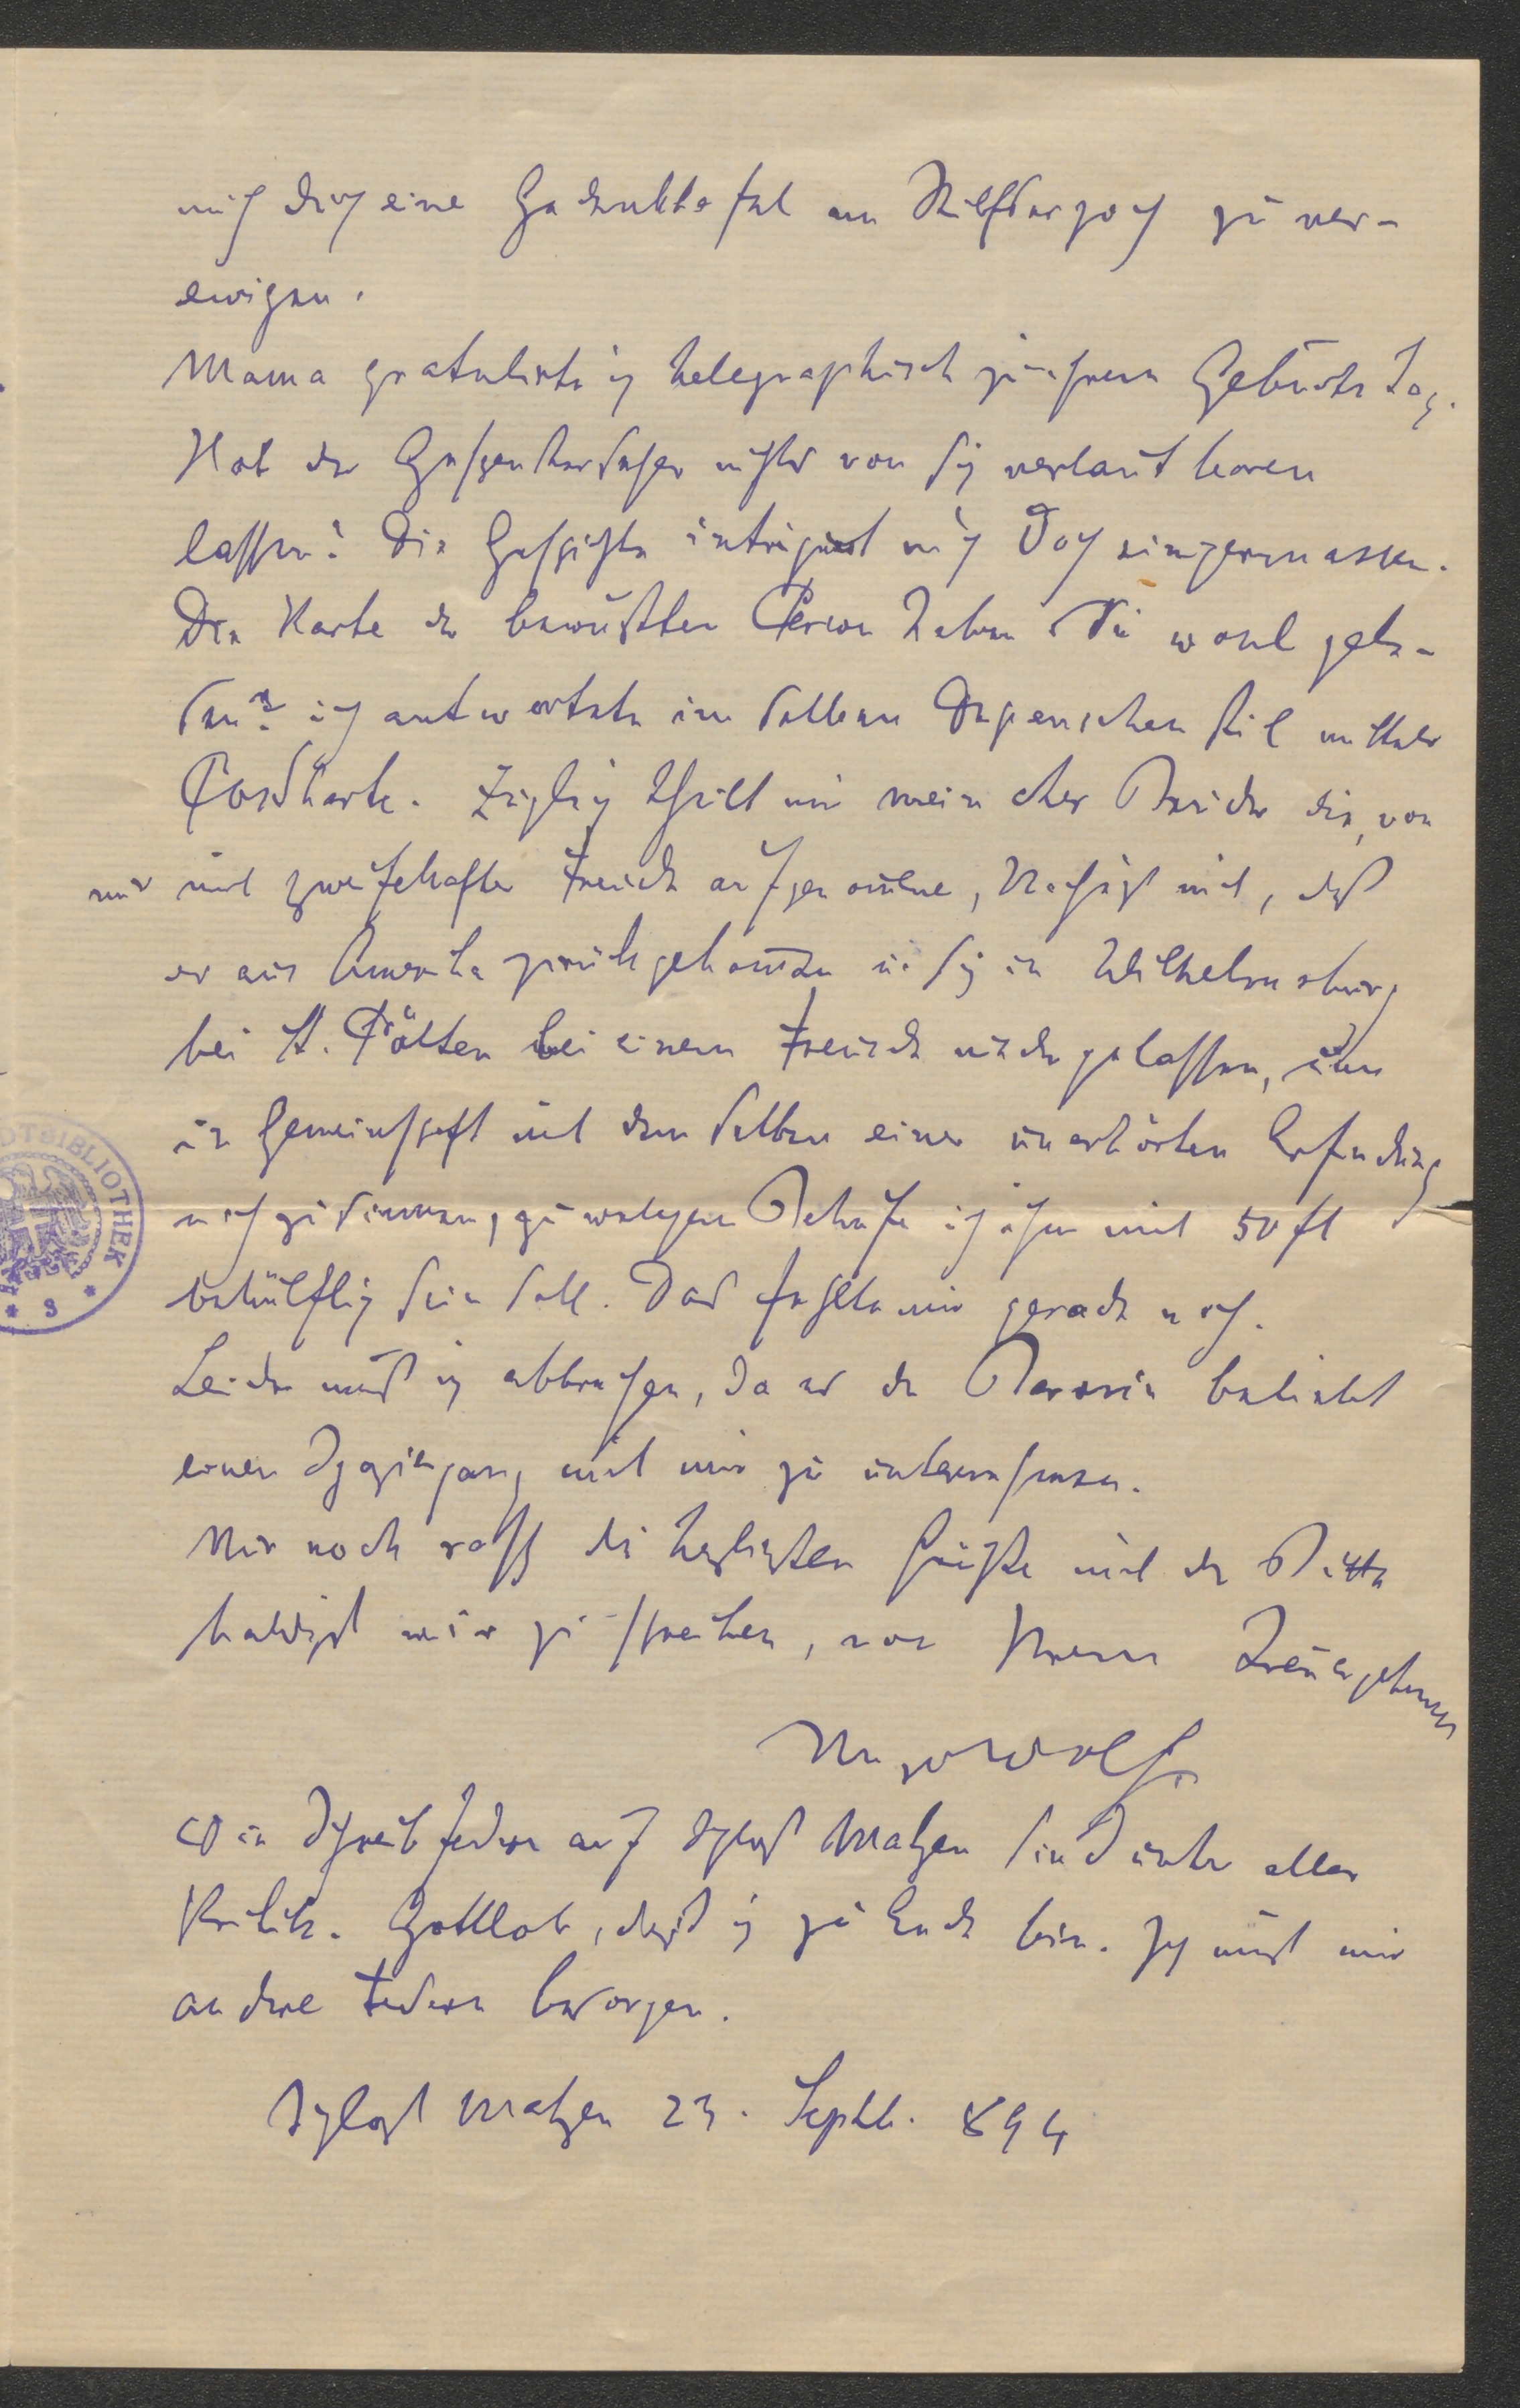 mich durch eine Gedenktafel am Stilfserjoch zu ver-
ewigen.
Mama gratulirte ich telegraphisch zu ihrem Geburtstag.
Hat der nichts von sich verlautbaren
lassen? Die Geschichte intriguirt mich doch einigermassen.
Die Karte der bewußten Person haben Sie wohl gele-
sen? ich antwortete im selben Depeschen stil mittels
Postkarte. Freilich theilt mir mein Bruder die, von
mir mit zweifelhafter Freude aufgenommene, Nachricht mit, daß
er aus Amerika zurückgekommen u. sich in Wilhelmsburg
bei St. Pölten bei einem Freunde niedergelassen, um
in Gemeinschaft mit demselben einer unerhörten Erfindung
nachzusinnen, zu welchem Behufe ich ihm mit 50 fl
behülflich sein soll. Das fehlte mir gerade noch.
Leider muß ich abbrechen, da es der Baronin beliebt
einen Spaziergang mit mir zu unternehmen.
Nur noch rasch die herzlichsten Grüße mit der Bitte
baldigst mir zu schreiben, von Ihrem Treuergebenen
Hugo Wolf
Die Schreibfedern auf Schloß Matzen sind unter aller
Kritik. Gottlob, daß ich zu Ende bin. Ich muß mir
andere Federn besorgen.
Schloß Matzen 23. Septb. 894
DTBIBLIOTHEK
* S *